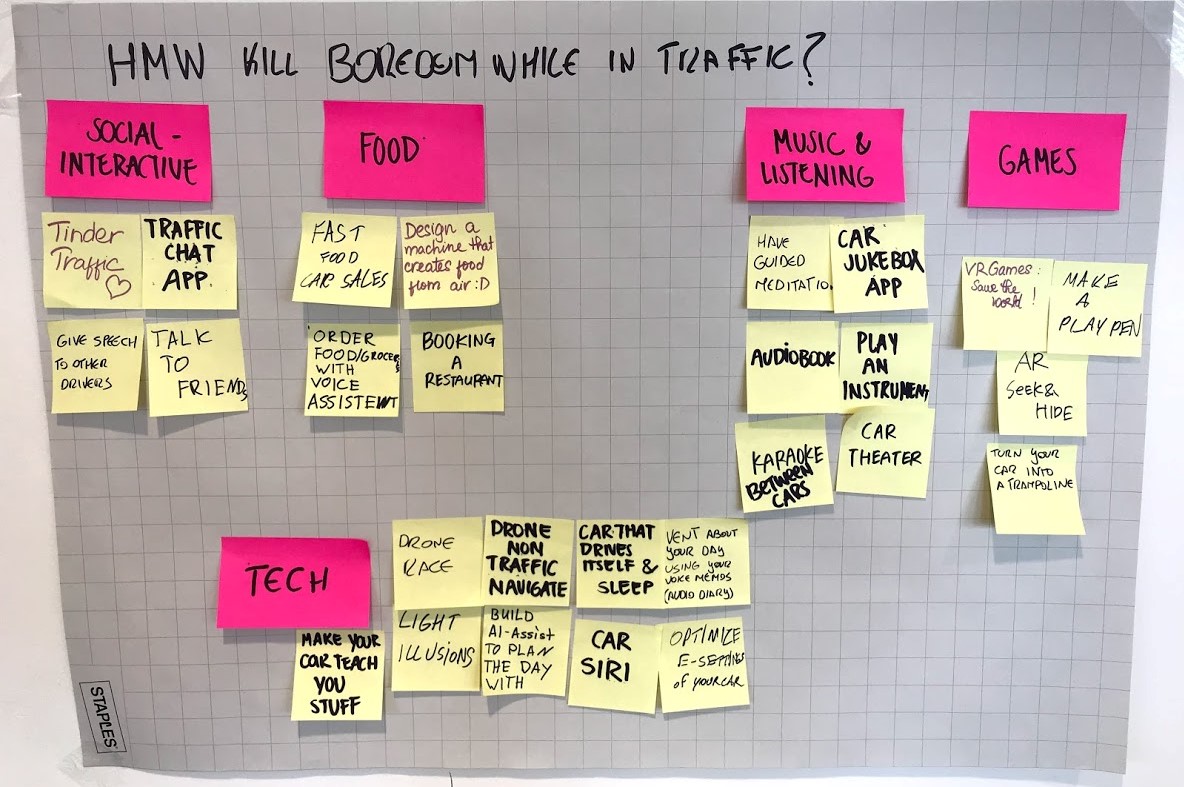 HMW KILL BOREDOM WHILE IN TRAFFIC?
SOCIAL -
INTERACTIVE
Tinder
Traffic
TRAFFIC
CHAT
APP
GIVE SPEECH
TO OTHER
DRIVERS
TALK
TO
FRIENDS
FOOD
FAST
FOOD
CAR SALES
Design a
machine that
creates food
from air :D
ORDER
FOOD/GROCER
WITH
VOICE
ASSISTENT
BOOKING
A
RESTAURANT
MUSIC &
LISTENING
HAVE
GUIDED
MEDITATIO
CAR
JUKEBOX
APP
AUDIOBOOK
PLAY
AN
INSTRUMENT
KARAOKE
BETWEEN
CARS
CAR
THEATER
GAMES
VR Games:
Save the
world!
MAKE
A
PLAY PEN
AR
SEEK&
HIDE
TURN YOUR
CAR INTO
A TRAMPOLINE
TECH
MAKE YOUR
CAR TEACH
YOU
STUFF
DRONE
RACE
DRONE
NON
TRAFFIC
NAVIGATE
CAR THAT
DRIVES
ITSELF &
SLEEP
VENT ABOUT
YOUR DAY
USING YOUR
VOICE MEMOS
(AUDIO DIARY)
LIGHT
ILLUSIONS
BUILD
AI-Assist
TO PLAN
THE DAY
WITH
CAR
SIRI
OPTIMIZE
E-SETTINGS
of YOUR CAR
STAPLES